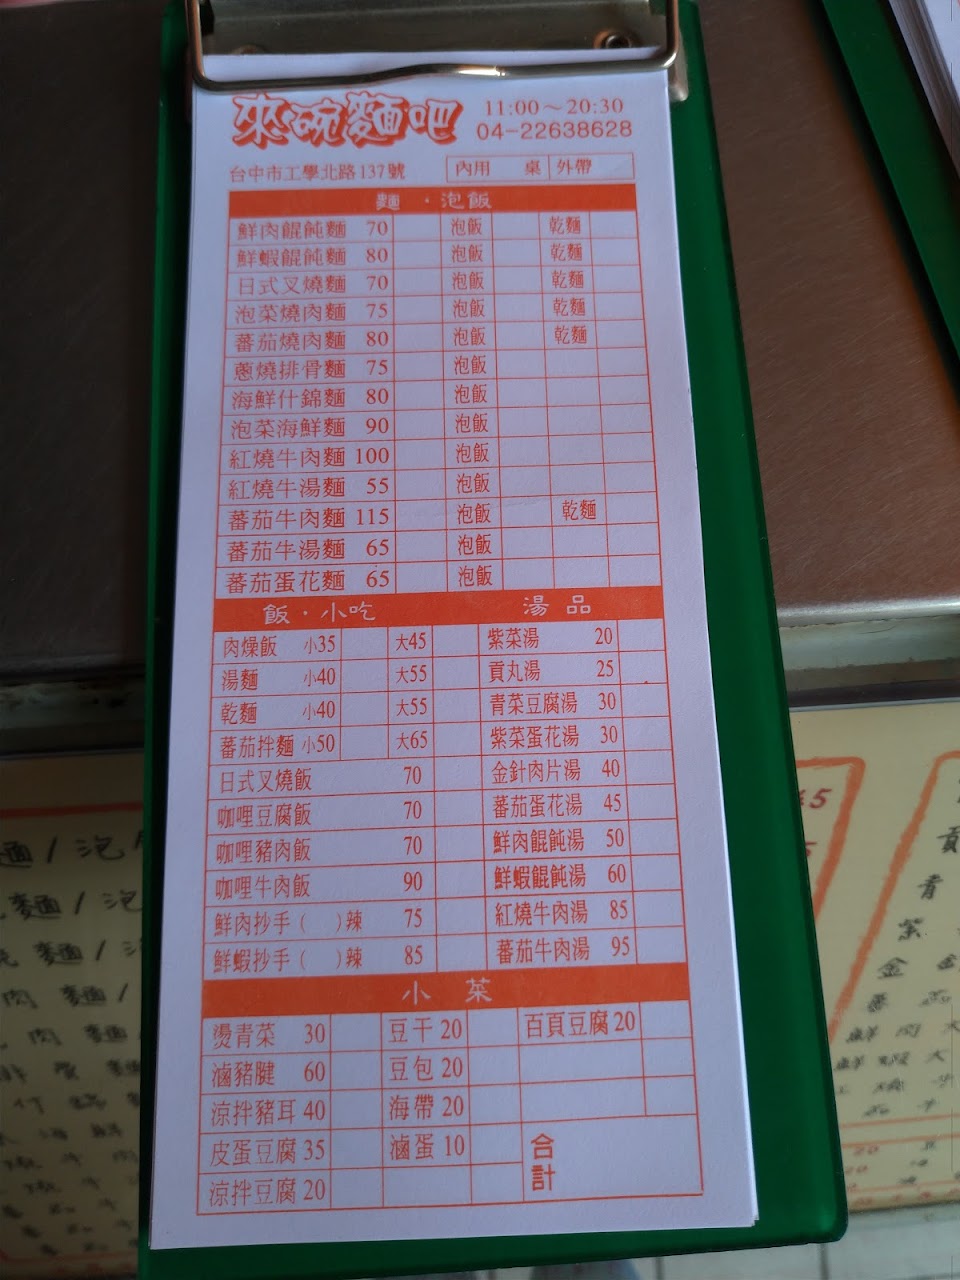 來碗麵吧 11:00～20:30
04-22638628
台中市工學北路137號 內用 桌 外帶
麵．泡飯
鮮肉餛飩麵 70 泡飯 乾麵
鮮蝦餛飩麵 80 泡飯 乾麵
日式叉燒麵 70 泡飯 乾麵
泡菜燒肉麵 75 泡飯 乾麵
蕃茄燒肉麵 80 泡飯 乾麵
蔥燒排骨麵 75 泡飯
海鮮什錦麵 80 泡飯
泡菜海鮮麵 90 泡飯
紅燒牛肉麵 100 泡飯
紅燒牛湯麵 55 泡飯
蕃茄牛肉麵 115 泡飯 乾麵
蕃茄牛湯麵 65 泡飯
蕃茄蛋花麵 65 泡飯
飯．小吃 湯品
肉燥飯 小35 大45 紫菜湯 20
湯麵 小40 大55 貢丸湯 25
乾麵 小40 大55 青菜豆腐湯 30
蕃茄拌麵 小50 大65 紫菜蛋花湯 30
日式叉燒飯 70 金針肉片湯 40
咖哩豆腐飯 70 蕃茄蛋花湯 45
咖哩豬肉飯 70 鮮肉餛飩湯 50
咖哩牛肉飯 90 鮮蝦餛飩湯 60
鮮肉抄手（ ）辣 75 紅燒牛肉湯 85
鮮蝦抄手（ ）辣 85 蕃茄牛肉湯 95
小菜
燙青菜 30 豆干 20 百頁豆腐 20
滷豬腱 60 豆包 20
涼拌豬耳 40 海帶 20
皮蛋豆腐 35 滷蛋 10 合計
涼拌豆腐 20